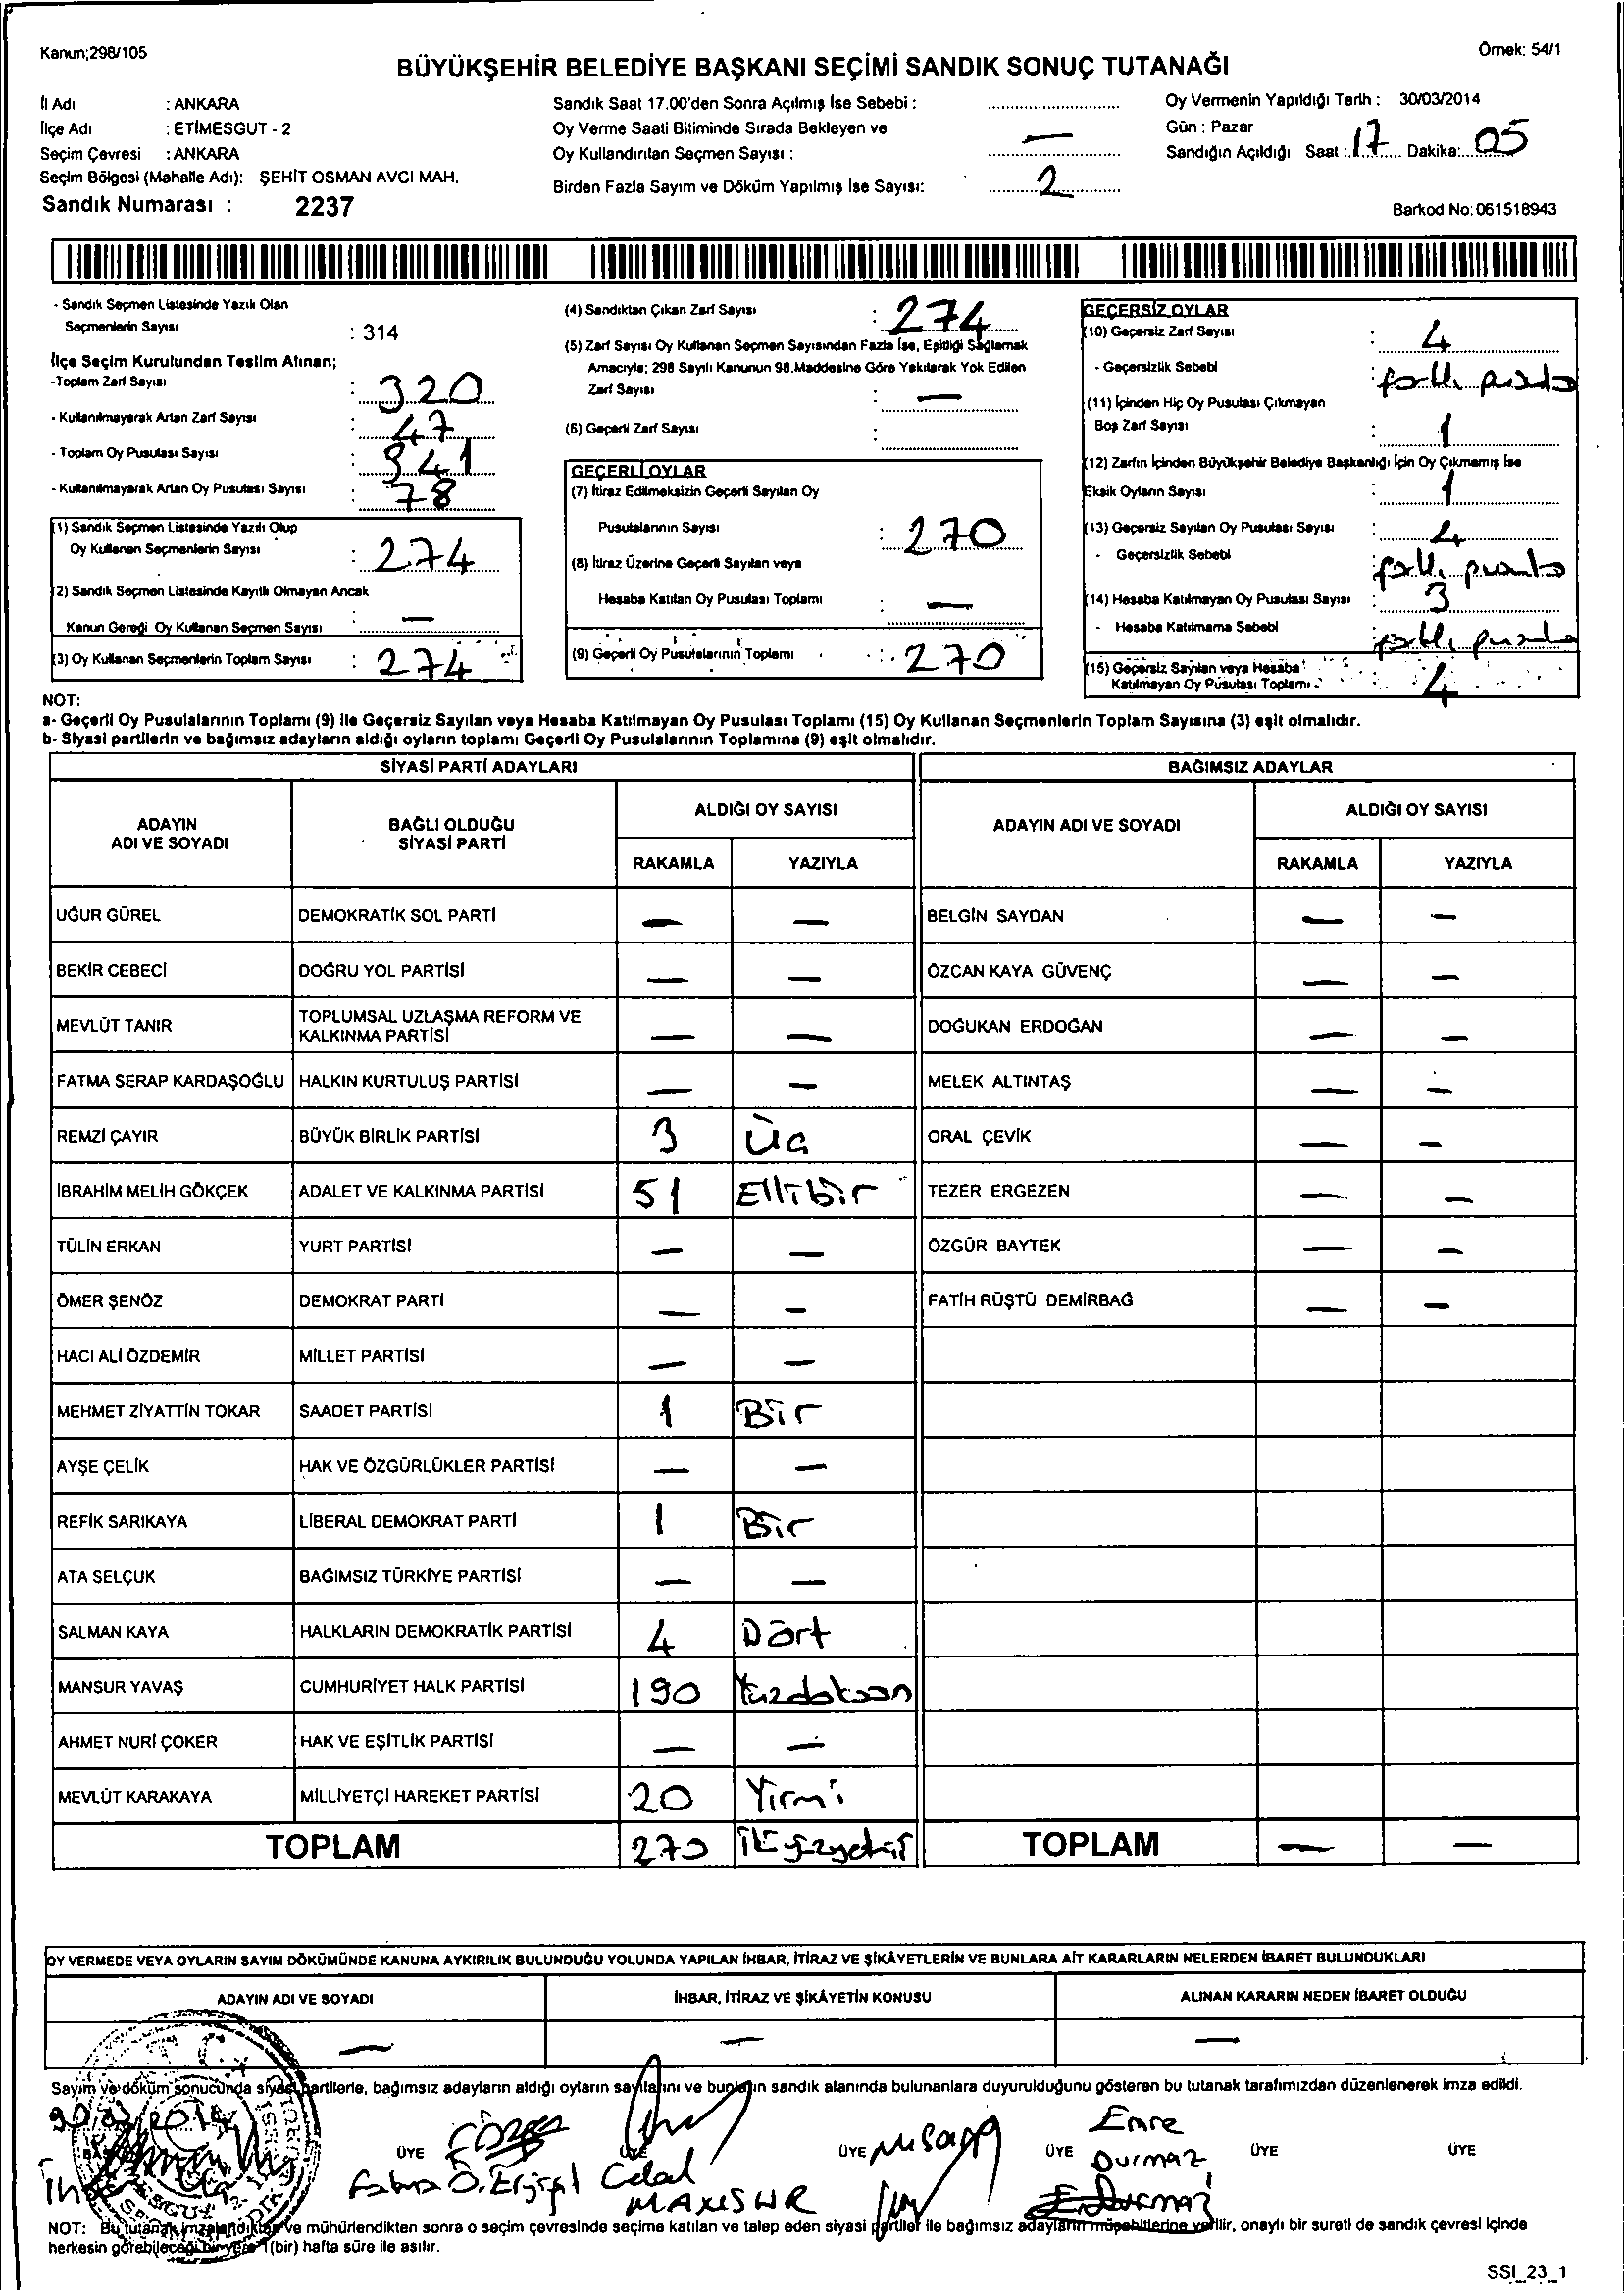 Kanun;298/105
Örnek: 54/1
BÜYÜKŞEHİR BELEDİYE BAŞKANI SEÇİMİ SANDIK SONUÇ TUTANAĞI
İl Adı : ANKARA
İlçe Adı : ETİMESGUT - 2
Seçim Çevresi : ANKARA
Seçim Bölgesi (Mahalle Adı): ŞEHİT OSMAN AVCI MAH.
Sandık Numarası : 2237
Sandık Saat 17.00'den Sonra Açılmış İse Sebebi :
Oy Verme Saati Bitiminde Sırada Bekleyen ve
Oy Kullandırılan Seçmen Sayısı : —
Birden Fazla Sayım ve Döküm Yapılmış İse Sayısı: 2
Oy Vermenin Yapıldığı Tarih : 30/03/2014
Gün : Pazar
Sandığın Açıldığı Saat : 17 Dakika: 05
Barkod No: 061518943
- Sandık Seçmen Listesinde Yazılı Olan
Seçmenlerin Sayısı : 314
İlçe Seçim Kurulundan Teslim Alınan;
-Toplam Zarf Sayısı : 320
- Kullanılmayarak Artan Zarf Sayısı : 47
- Toplam Oy Pusulası Sayısı : 341
- Kullanılmayarak Artan Oy Pusulası Sayısı : 78
(1) Sandık Seçmen Listesinde Yazılı Olup
Oy Kullanan Seçmenlerin Sayısı : 274
(2) Sandık Seçmen Listesinde Kayıtlı Olmayan Ancak
Kanun Gereği Oy Kullanan Seçmen Sayısı —
(3) Oy Kullanan Seçmenlerin Toplam Sayısı : 274
(4) Sandıktan Çıkan Zarf Sayısı : 274
(5) Zarf Sayısı Oy Kullanan Seçmen Sayısından Fazla İse, Eşitliği Sağlamak
Amacıyla; 298 Sayılı Kanunun 98.Maddesine Göre Yakılarak Yok Edilen
Zarf Sayısı : —
(6) Geçerli Zarf Sayısı :
GEÇERLİ OYLAR
(7) İtiraz Edilmeksizin Geçerli Sayılan Oy
Pusulalarının Sayısı : 270
(8) İtiraz Üzerine Geçerli Sayılan veya
Hesaba Katılan Oy Pusulası Toplamı : —
(9) Geçerli Oy Pusulalarının Toplamı : 270
GEÇERSİZ OYLAR
(10) Geçersiz Zarf Sayısı : 4
- Geçersizlik Sebebi
(11) İçinden Hiç Oy Pusulası Çıkmayan
Boş Zarf Sayısı : 1
(12) Zarfın İçinden Büyükşehir Belediye Başkanlığı İçin Oy Çıkmamış İse
Eksik Oyların Sayısı : 1
(13) Geçersiz Sayılan Oy Pusulası Sayısı : 4
- Geçersizlik Sebebi
(14) Hesaba Katılmayan Oy Pusulası Sayısı : 3
- Hesaba Katılmama Sebebi
(15) Geçersiz Sayılan veya Hesaba
Katılmayan Oy Pusulası Toplamı : 4
NOT:
a- Geçerli Oy Pusulalarının Toplamı (9) ile Geçersiz Sayılan veya Hesaba Katılmayan Oy Pusulası Toplamı (15) Oy Kullanan Seçmenlerin Toplam Sayısına (3) eşit olmalıdır.
b- Siyasi partilerin ve bağımsız adayların aldığı oyların toplamı Geçerli Oy Pusulalarının Toplamına (9) eşit olmalıdır.
SİYASİ PARTİ ADAYLARI
ADAYIN ADI VE SOYADI
BAĞLI OLDUĞU SİYASİ PARTİ
ALDIĞI OY SAYISI
RAKAMLA YAZIYLA
UĞUR GÜREL DEMOKRATİK SOL PARTİ — —
BEKİR CEBECİ DOĞRU YOL PARTİSİ — —
MEVLÜT TANIR TOPLUMSAL UZLAŞMA REFORM VE KALKINMA PARTİSİ — —
FATMA SERAP KARDAŞOĞLU HALKIN KURTULUŞ PARTİSİ — —
REMZİ ÇAYIR BÜYÜK BİRLİK PARTİSİ 3 Üç
İBRAHİM MELİH GÖKÇEK ADALET VE KALKINMA PARTİSİ 51 Ellibir
TÜLİN ERKAN YURT PARTİSİ — —
ÖMER ŞENÖZ DEMOKRAT PARTİ — —
HACI ALİ ÖZDEMİR MİLLET PARTİSİ — —
MEHMET ZİYATTİN TOKAR SAADET PARTİSİ 1 Bir
AYŞE ÇELİK HAK VE ÖZGÜRLÜKLER PARTİSİ — —
REFİK SARIKAYA LİBERAL DEMOKRAT PARTİ 1 Bir
ATA SELÇUK BAĞIMSIZ TÜRKİYE PARTİSİ — —
SALMAN KAYA HALKLARIN DEMOKRATİK PARTİSİ 4 Dört
MANSUR YAVAŞ CUMHURİYET HALK PARTİSİ 190 Yüzdoksan
AHMET NURİ ÇOKER HAK VE EŞİTLİK PARTİSİ — —
MEVLÜT KARAKAYA MİLLİYETÇİ HAREKET PARTİSİ 20 Yirmi
TOPLAM 270
BAĞIMSIZ ADAYLAR
ADAYIN ADI VE SOYADI
ALDIĞI OY SAYISI
RAKAMLA YAZIYLA
BELGİN SAYDAN — —
ÖZCAN KAYA GÜVENÇ — —
DOĞUKAN ERDOĞAN — —
MELEK ALTINTAŞ — —
ORAL ÇEVİK — —
TEZER ERGEZEN — —
ÖZGÜR BAYTEK — —
FATİH RÜŞTÜ DEMİRBAĞ — —
TOPLAM — —
OY VERMEDE VEYA OYLARIN SAYIM DÖKÜMÜNDE KANUNA AYKIRILIK BULUNDUĞU YOLUNDA YAPILAN İHBAR, İTİRAZ VE ŞİKÂYETLERİN VE BUNLARA AİT KARARLARIN NELERDEN İBARET BULUNDUKLARI
ADAYIN ADI VE SOYADI İHBAR, İTİRAZ VE ŞİKÂYETİN KONUSU ALINAN KARARIN NEDEN İBARET OLDUĞU
— — —
Sayım ve döküm sonucunda siyasi partilerle, bağımsız adayların aldığı oyların sayılarını ve bunların sandık alanında bulunanlara duyurulduğunu gösteren bu tutanak tarafımızdan düzenlenerek imza edildi.
ÜYE ÜYE ÜYE ÜYE ÜYE ÜYE
Celal
Emre
Durmaz
E.Durmaz
NOT: Bu tutanak imzalandıktan ve mühürlendikten sonra o seçim çevresinde seçime katılan ve talep eden siyasi partiler ile bağımsız adayların müşahitlerine verilir, onaylı bir sureti de sandık çevresi içinde
herkesin görebileceği bir yere 1(bir) hafta süre ile asılır.
SSI_23_1